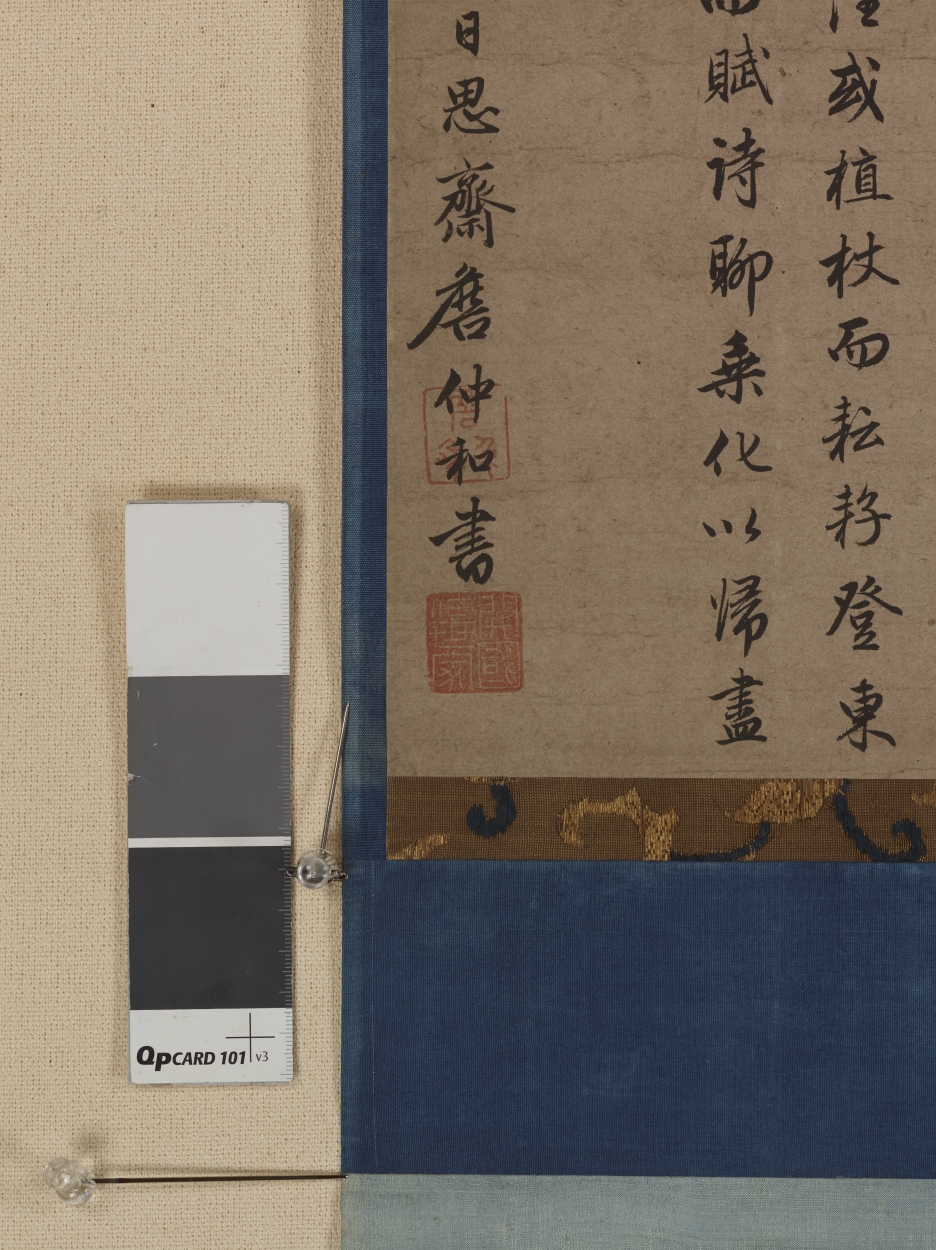 或植杖而耘耔登東
賦诗聊乗化以㱕盡
日思齋詹仲和書
QPCARD 101 v3